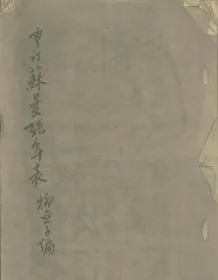 重訂蘇曼殊年表 柳亞子編